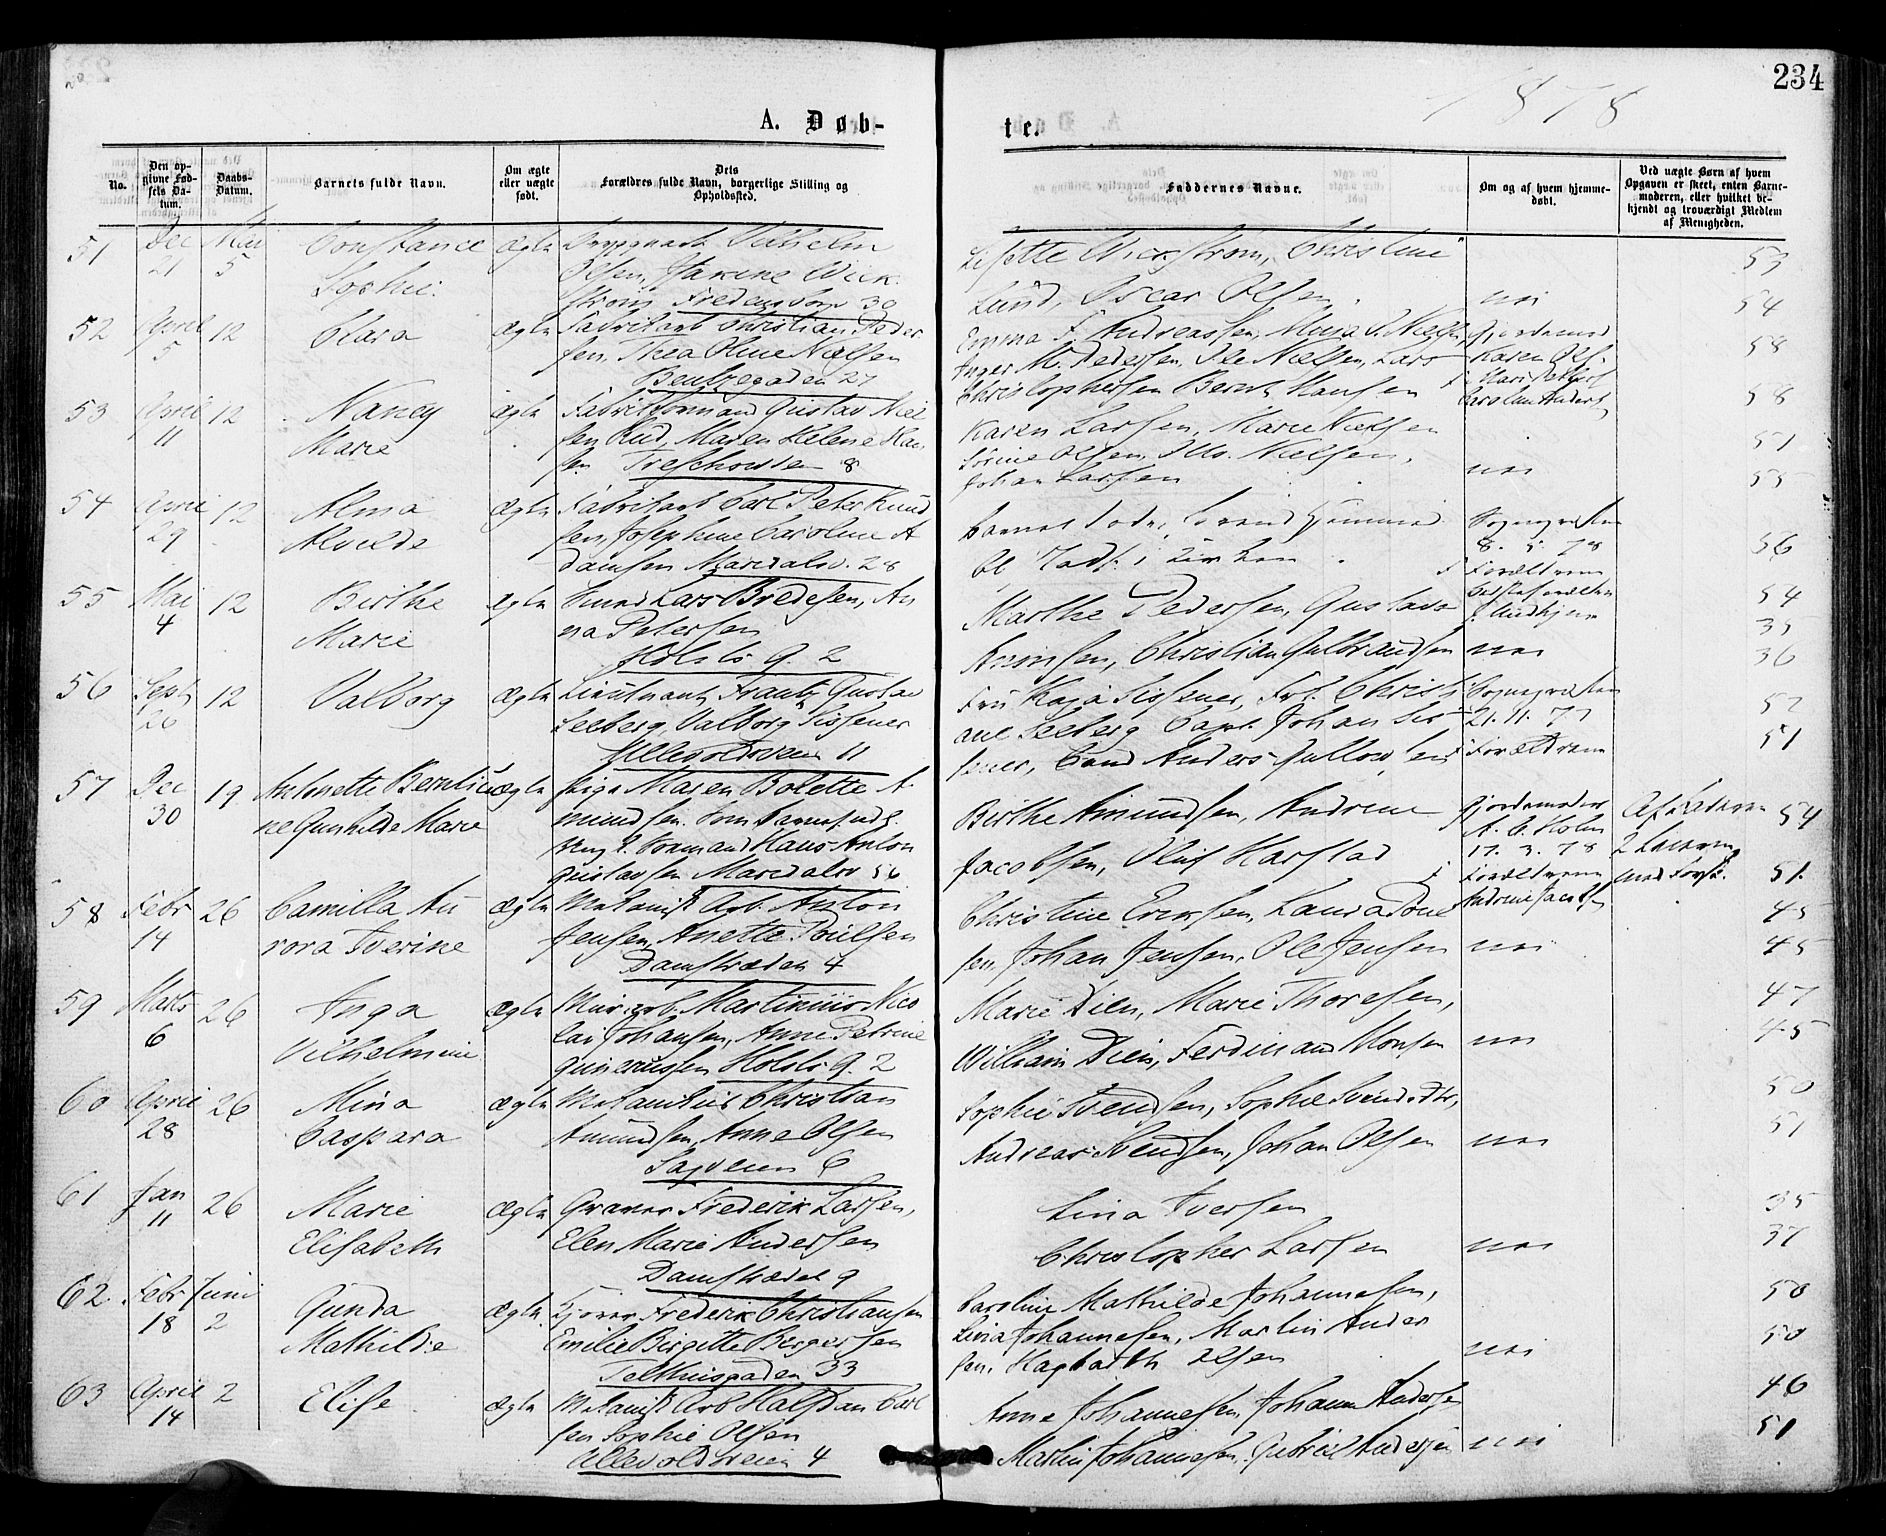 234
1878
A. Døb-
te.
No.
Den op-
givne Fød-
sels Da-
tum.
Daabs-
Datum.
Barnets fulde Navn.
Om ægte
eller uægte
født.
Dets
Forældres fulde Navn, borgerlige Stilling og
Opholdssted.
Faddernes Navne.
Om og af hvem hjemme-
døbt.
Ved uægte Børn af hvem
Opgaven er skeet, enten Barne-
moderen, eller hvilket be-
kjendt og troværdigt Medlem
af Menigheden.
51 Dec 21 Mai 5 Constance Sophie ægte
Vilhelm
Olsen, Jakine Wick
strøm Fredensborgv 30
Lisette Wickstrøm, Christine
Lund, Oscar Olsen
nei
53
54
52 April 5 12 Clara ægte
Fabrikarb Christian Peder
sen, Thea Oline Nielsen
Bentzegaden 27
Emma F. Andreassen, Musa S. Nielsen
Inger M. Pedersen, Ole Nielsen, Lars
Christophersen Bernt Hansen
Gjordemod
Karen Ols
58
58
53 April 11 12 Nancy Marie ægte
Fabrikformand Gustav Niel
sen Rud, Maren Helene Han
sen Treschowsten 8
Karen Larsen, Marie Nielsen
Sørine Olsen, Nielsen,
Johan Larsen
nei
51
55
54 April 29 12 Alma Alvilde ægte
Fabrikarb Carl Peter Knud
sen, Josephine Caroline A
damsen Maridalsv. 28
Sognepresten
8. 5. 78
Forældrene
56
55 Mai 4 12 Birthe Marie ægte
Smed Lars Bredesen, An
na Petersen
Holsts G. 2
Marthe Pedersen, Gustava
Arnesen, Christian Gulbrandsen
nei
54
35
36
56 Sept 26 12 Valborg ægte
Lieutnant Frantz Gustav
Seeberg, Valborg Sissener
Ullevoldsveien 11
Fru Kaja Sissener, Frk. Christi
ane Seeberg Capt. Johan Sis
sener, Cand Anders Gullow
Sognepresten
21. 11. 77
Forældrene
52
51
57 Dec 30 19 Antonette Bernti
ne Gunhilde Marie uægte
Pige Maren Bolette A
mundsen. Som Barnefader
Formand Hans Anton
Gustavsen Maridalsv 56
Birthe Amundsen, Andrene
Jacobsen, Oluf Harstad
Gjordemoder
A. C. Holm
17. 3. 78
Forældrene
Andrine Jacobs
54
51
58 Febr 14 26 Camilla Au
rora Iverine ægte
Mekanisk Arb. Anton
Jensen, Anette Poulsen
Damstræden 4
Christine Eriksen, Laura Poul
sen Johan Jensen, Ole Jensen
nei
45
45
59 Marts 6 26 Inga Vilhelmine ægte
Murarb. Martinius Nico
lai Johansen, Anne Petrine
Gunerusen Holsts G. 2
Marie Dien, Marie Thoresen,
William Dien, Ferdinand Monsen
nei
47
45
60 April 28 26 Mina Caspara ægte
Mekanikus Christian
Amundsen, Anne Olsen
Sagveien 6
Sophie Svendsen, Sophie Svendsdtr,
Andreas Svendsen, Johan Olsen
nei
50
51
61 Jan 11 26 Marie Elisabeth ægte
Graver Frederik Larsen,
Elen Marie Andersen
Damstrædet 9
Lina Iversen
Christopher Larsen
nei
35
37
62 Febr 18 Juni 2 Gunda Mathilde ægte
Kjører Frederik Christiansen
Emilie Birgitte Birgersen
Telthusgaden 33
Caroline Mathilde Johannesen,
Lina Johannesen, Martin Ander
sen, Hagbarth Olsen
nei
50
50
63 April 14 2 Elise ægte
Mekanisk Arb Halfdan Carl
sen Sophie Olsen
Ullevoldsveien 4
Anne Johannesen, Johann Andersen
Martin Johannesen, Gabriel Andersen
nei
46
51